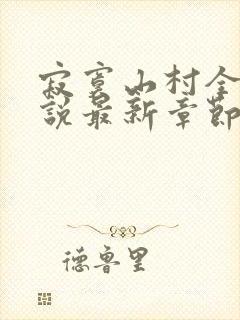 寂寞山村全
說最新章節
德魯里